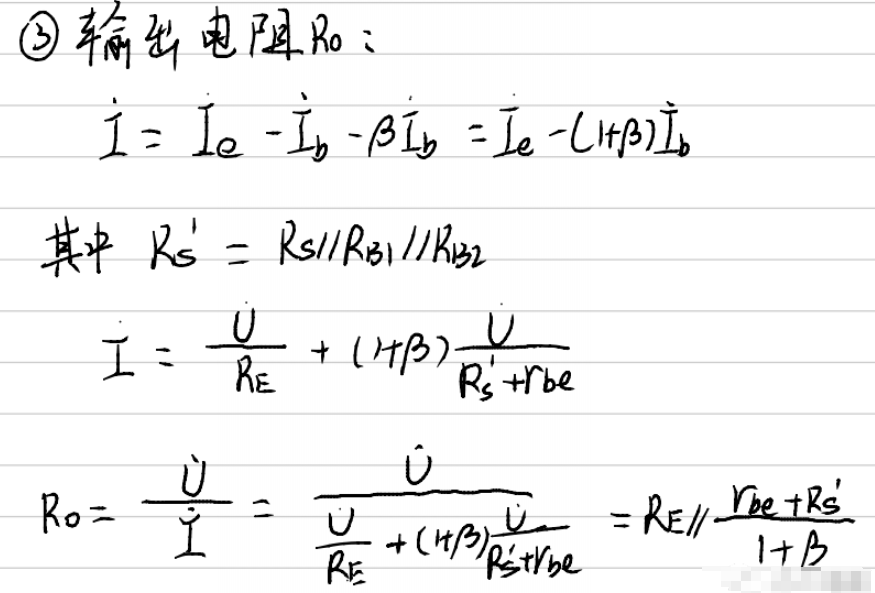 ③ 输出电阻Ro：
İ = İe - İb - βİb = İe - (1+β)İb
其中 Rs' = Rs//RB1//RB2
İ = U̇/RE + (1+β) U̇/(Rs'+rbe)
Ro = U̇/İ = U̇/(U̇/RE + (1+β) U̇/(Rs'+rbe)) = RE // (rbe+Rs')/(1+β)